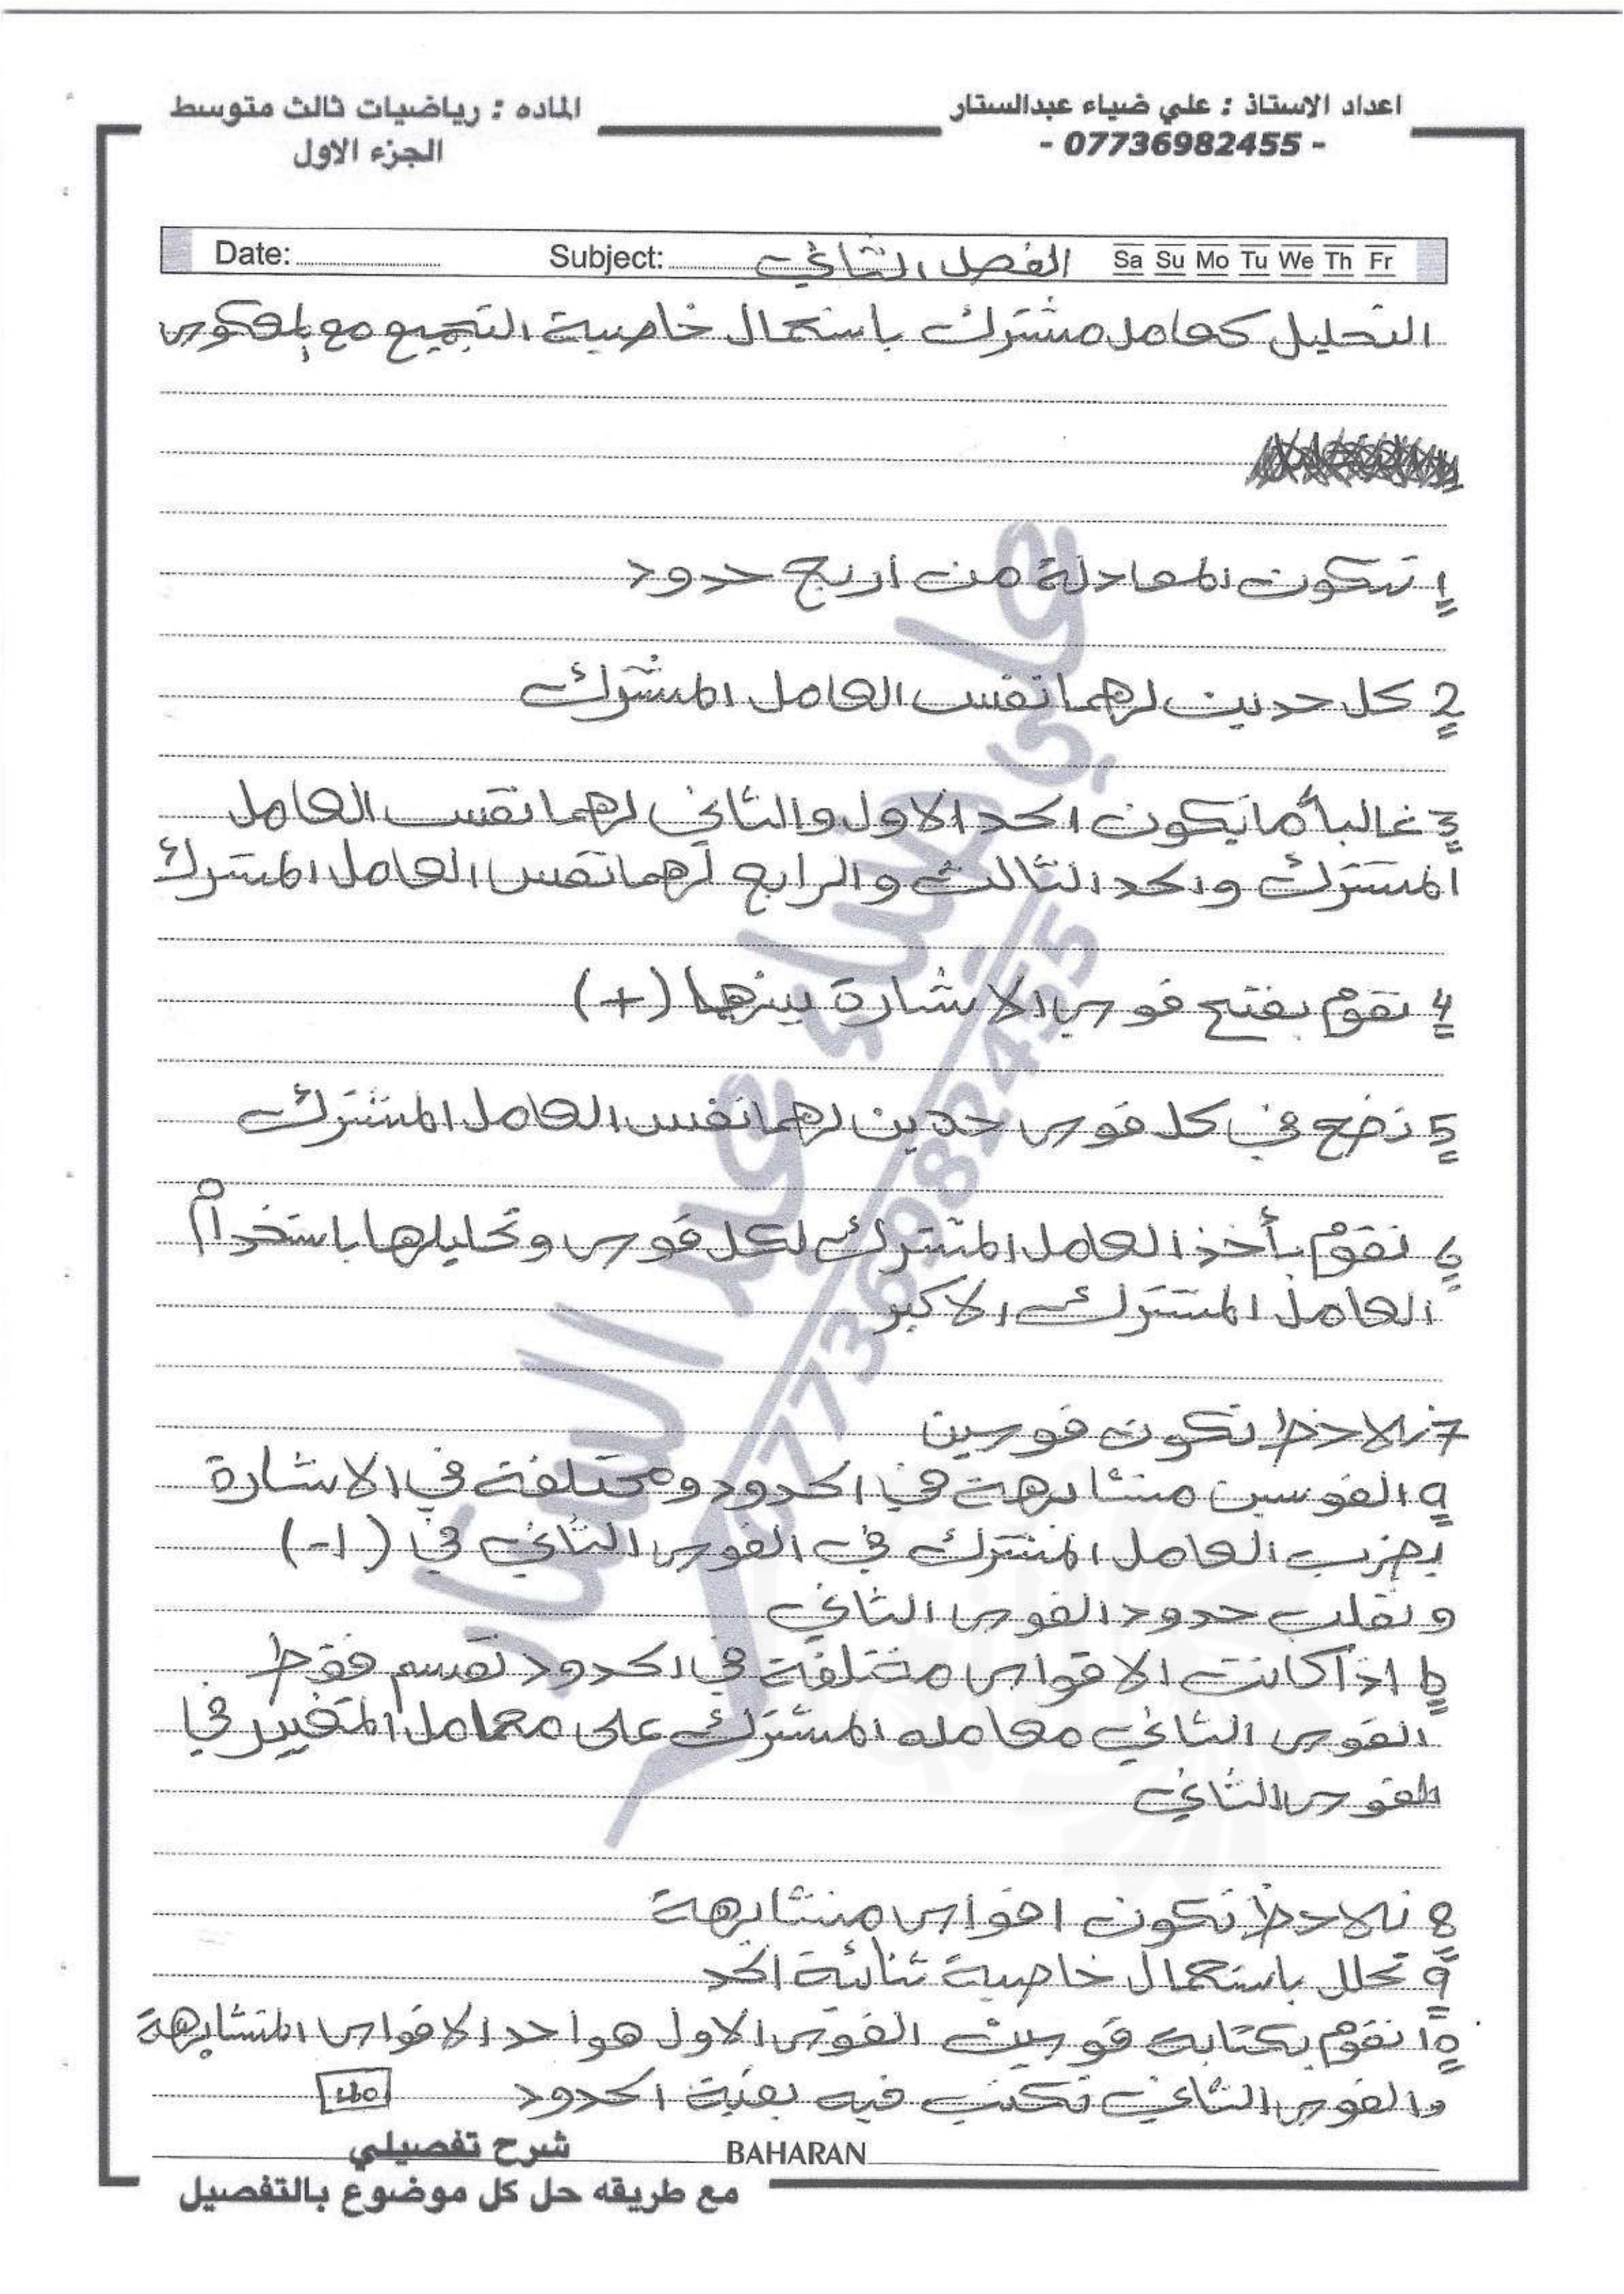 اعداد الاستاذ : علي ضياء عبدالستار
- 07736982455 -
الماده : رياضيات ثالث متوسط
الجزء الاول
Date: Subject: الفصل الثاني Sa Su Mo Tu We Th Fr
التحليل كعامل مشترك باستعمال خاصية التجميع مع المعكوس
1 تتكون المعادلة من اربع حدود
2 كل حدين لهما نفس العامل المشترك
3 غالباً ما يكون الحد الاول والثاني لهما نفس العامل
المشترك والحد الثالث والرابع لهما نفس العامل المشترك
4 نقوم بفتح قوس الاشارة بينهما (+)
5 نضع في كل قوس حدين لهما نفس العامل المشترك
6 نقوم بأخذ العامل المشترك لكل قوس وتحليلها باستخدام
العامل المشترك الاكبر
7 نلاحظ تكون قوسين
a القوسين متشابهة في الحدود ومختلفة في الاشارة
يضرب العامل المشترك في القوس الثاني في (-1)
ونقلب حدود القوس الثاني
b اذا كانت الاقواس مختلفة في الحدود نقسم فقط
القوس الثاني معامله المشترك على معامل المتغير في
القوس الثاني
8 نلاحظ تكون اقواس متشابهة
9 نحلل باستعمال خاصية ثنائية الحد
10 نقوم بكتابة قوسين القوس الاول هو احد الاقواس المتشابهة
والقوس الثاني نكتب فيه بقية الحدود
علي ضياء عبد الستار
07736982455
BAHARAN
شرح تفصيلي
مع طريقه حل كل موضوع بالتفصيل